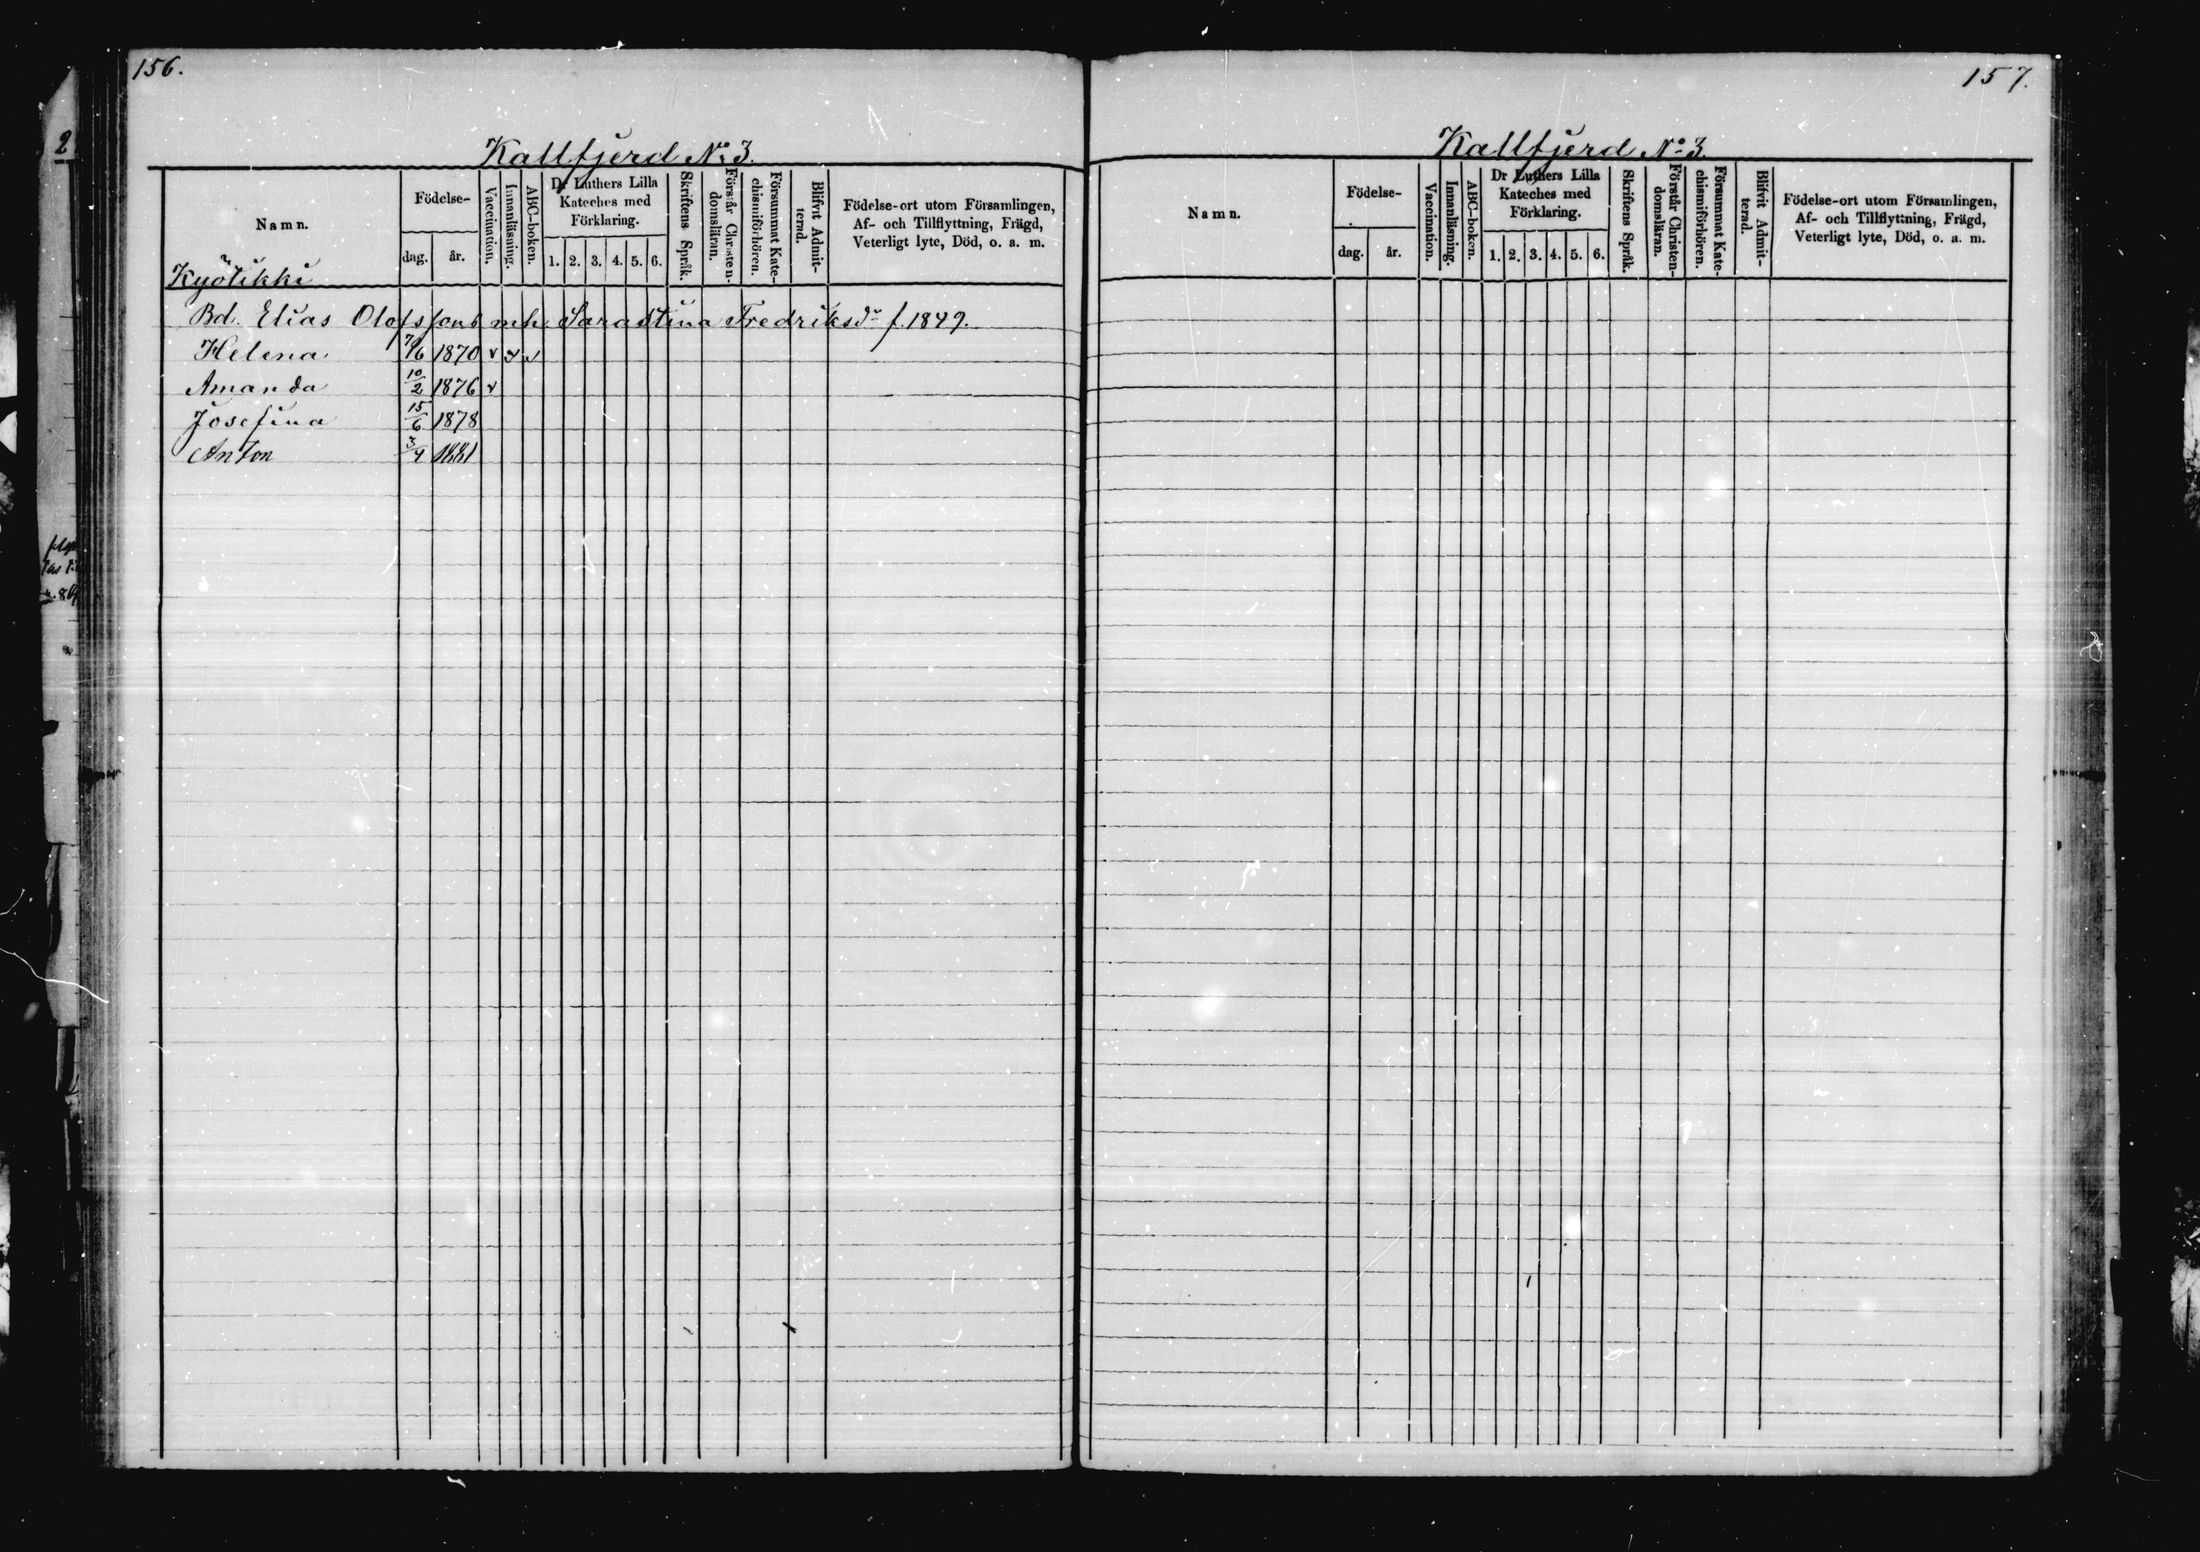 156.
Kallfjerd No 3.
Namn.
Födelse-
dag.
år.
Vaccination.
Innanläsning.
ABC-boken.
Dr Luthers Lilla
Kateches med
Förklaring.
1. 2. 3. 4. 5. 6.
Skriftens Språk.
Förstår Christen-
domsläran.
Försummat Kate-
chismiförhören.
Blifvit Admit-
terad.
Födelse-ort utom Församlingen,
Af- och Tillflyttning, Frägd,
Veterligt lyte, Död, o. a. m.
Kyötikki
Bd. Elias Olofssons mh. Sarastina Fredriksdr f. 1849.
Helena 7/6 1870 v v v
Amanda 10/2 1876 v
Josefina 15/6 1878
Anton 3/4 1881
157.
Kallfjerd No 3.
Namn.
Födelse-
dag.
år.
Vaccination.
Innanläsning.
ABC-boken.
Dr Luthers Lilla
Kateches med
Förklaring.
1. 2. 3. 4. 5. 6.
Skriftens Språk.
Förstår Christen-
domsläran.
Försummat Kate-
chismiförhören.
Blifvit Admit-
terad.
Födelse-ort utom Församlingen,
Af- och Tillflyttning, Frägd,
Veterligt lyte, Död, o. a. m.
2